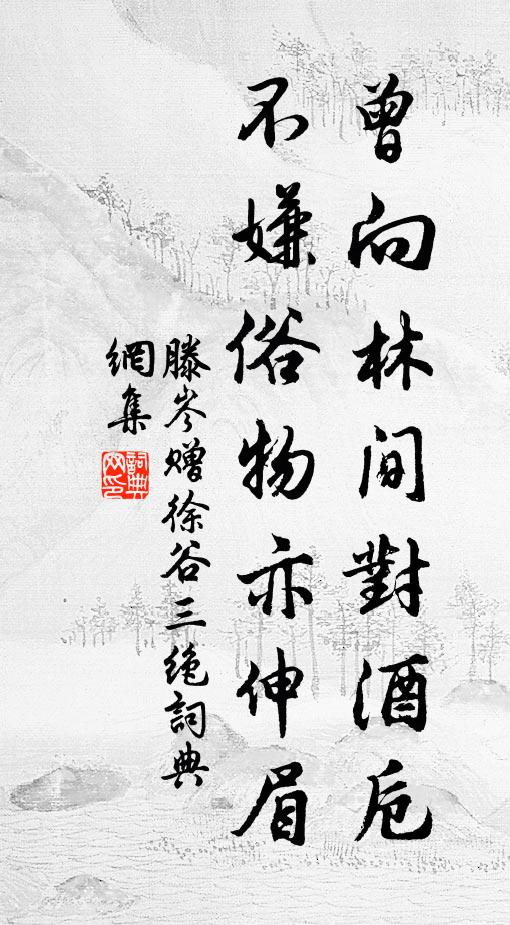 曾向林間對酒卮
不嫌俗物亦伸眉
滕岑赠徐谷三绝詞典
網集
詞典网印